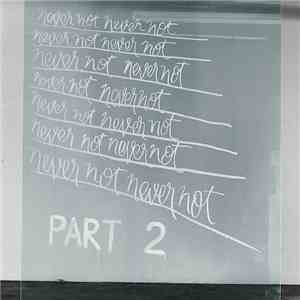 never not never not
never not never not
never not never not
never not never not
never not never not
never not never not
never not never not
PART 2